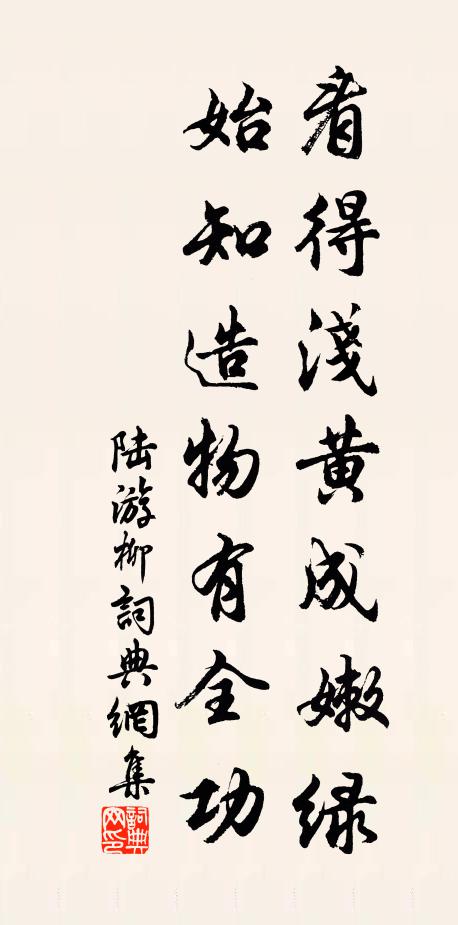 看得淺黄成嫩綠
始知造物有全功
陆游柳詞典網集
詞典
网印